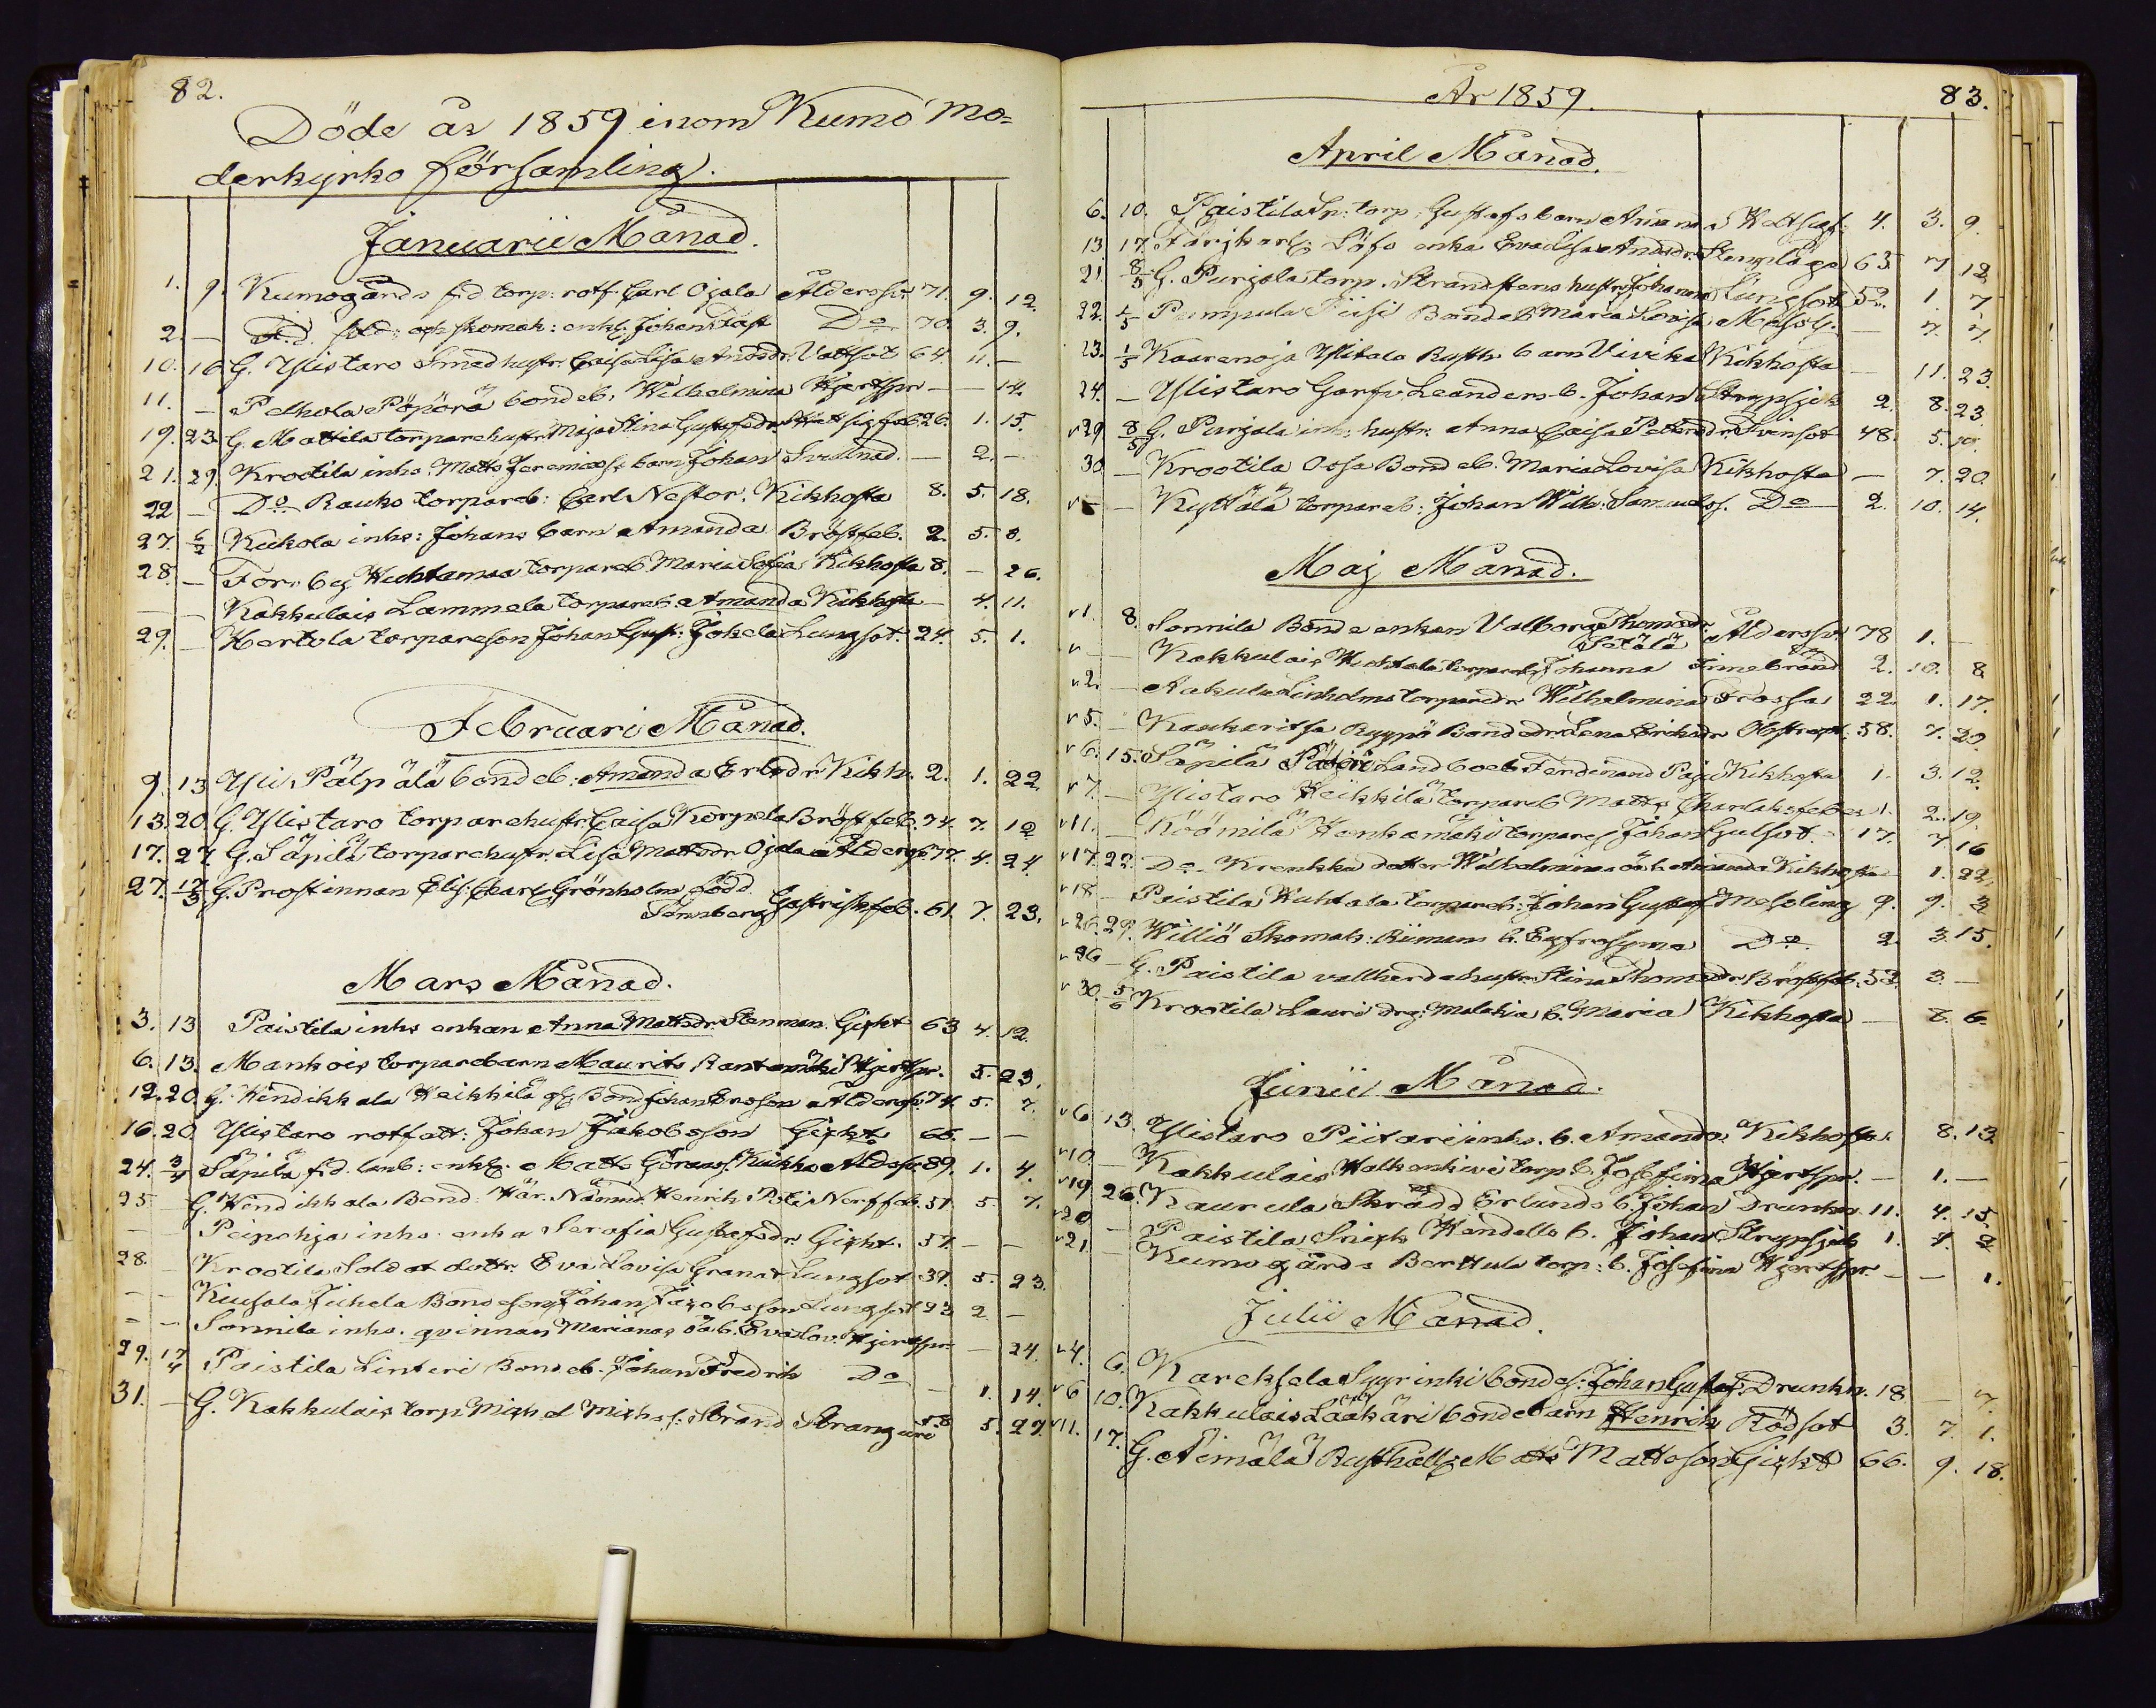 82.
Döde år 1859 inom Kumo Mo=
derkyrko församling.
Januarii Månad.
1. 9. Kumogårds f.d. torp: rotf. Carl Ojala Åldersv. 71. 9. 12.
2. — skomak: enkl. Johan Do 70. 3. 9.
10. 16 G. Ylistaro Smed hustr. Caisa Lisa Andsdr. Vattsot 64. 11. —
11. — Pelhola Pöpörä bondeb. Wilhelmina Hjertspr — — 14.
19. 23. G. Mattila torparehustr Maja Stina Gustafsdr. 26. 1. 15.
21. 29. Krootila inhs. Matts Jeremiass. barn Johan — 2. —
22 — Do Rauko torpareb: Carl Nestor. Kikhosta 8. 5. 18.
27. 6/2 Kukola inhs: Johans barn Amanda Bröstfeb. 2. 5. 8.
28. — Forsby Huhtamaa torpareb Maria Sofia Kikhosta 8. — 26.
— — Kakkulais Lammela torpareb. Amanda Kikhosta — 4. 11.
29. — Hertola torpareson Johan Gust: Jokela Lungsot. 24. 5. 1.
Februari Månad.
9. 13 Yli Pälpälä bondeb: Amanda Kikh. 2. 1. 22.
13. 20 G. Ylistaro torparehustr. Caisa Korpela Bröstfeb. 74. 7. 12
17. 27 G. Säpilä torparehustr. Lisa Mattsdr Ojala Ålders 77. 4. 24.
27. 17/3 G. Prostinnan Elis: Charl. Grönholm född
Tönnberg Gastriskfeb. 61. 7. 23.
Mars Månad.
3. 13 Paistila inhs enkan Anna Mattsdr. Stenman Gikt 63 4. 12.
6. 13. Mankois torparebarn Maurits Rantamäki Hjertspr. 5. 23.
12. 20 G. Hindikkala Heikkilä Bond Johan Ersson Ålders 74. 5. 7.
16. 20 Ylistaro rotfatt: Johan Jakobsson Gikt 66. — —
24. 3/4 Säpilä f.d. lanb: enkl. Matts Göranss. Kuikko Ålderss 89. 1. 4.
25 G. Hindikkala Bond. Här. Nämnd. Henrik Pöli Nerffeb. 51. 5. 7.
— Peipohja inhs. enka Serafia Gustafsdr. Gikt. 57. — —
28. — Krootila Soldat dottr. Eva Lovisa Granat Lungsot 37. 5. 23.
— — Kiusala Juhela Bondeson Johan Jacobsson Lungsot 23 2. —
— — Sonnila inhs. qvinnan Marianas oäb. Eva Lov. Hjertspr. — 24.
29. 17/4 Paistila Linteri Bondeb. Johan Fredrik Do — 1. 14.
31. — G. Kakkulais torp Mikel Mikels: Strand Stranguri 58 5. 27.
År 1859. 83.
April Månad.
6. 10. Paistila torp. Gustafs barn Amanda 4. 3. 9.
13. 17. Färjkarl Löfs enka Eva Lisa Andsdr. Stenplåga 63. 7 12
21. 8/5 G. Purjala torp. Strandstens hustr. Johanna Lungsot 52. 1. 7
22. 1/5 Pumpula Piisi Bondeb Maria Lovisa Messl. — 7. 7.
23. 1/5 Kaaranoja Ylitalo Rusth. barn Vivika Kikhosta — 11. 23.
24. — Ylistaro Garfv. Leanders b. Johan Strypsjuk 2. 8. 23
29 8/5 G. Purjala inh: hustr: Anna Caisa Petersdr. Svinsot 48. 5. 10.
30 — Krootila Ossa Bondeb. Maria Lovisa Kikhosta — 7. 20.
— — Kyttälä torpareb: Johan Wilh: Samuels. Do 2. 10. 14.
Maj Månad.
1. 8. Sonnila Bonde enkan Valborg Thomasdr.
Setälä Åldersv. 78 1. —
— Kakkulais Huhtala torpareb Johanna Inne brand 2. 10. 8.
2. — Kakula Linholms torparedr Wilhelmina Frossa 22. 1. 17.
5. — Kaukaritsa Ryppö Bondedr. Lena Eriksdr Obstrupt. 58. 7. 20.
6. 15. Säpilä Landboeb Ferdinand Kikhosta 1. 3. 12.
7. — Ylistaro Heikkilä torpareb Matts Charlaksfeber 1. 2. 19.
11. — Köömilä Honkamäki torpares. Johan Gulsot. 17. 7 16
17. 22. Do Krenkka dotter Wilhelminas oäb. Amanda Kikhosta 1. 22.
18. — Paistila Huhtala torpareb. Johan Gustaf Messling 9. 9. 3
26. 29. Williö Skomak: Riimans b. Eufrosyna Do. 2. 3. 15.
26 — G. Paistila vallherdehustr. Stina Thomasdr. Bröstfeb. 53. 3. —
30. 5/6 Krootila Lauri drg: Malakia b. Maria Kikhosta — 8. 6.
Junii Månad.
6 13. Ylistaro Piitari inhs. b. Amanda Kikhosta. 8. 13.
10 — Kakkulais Halkenkivi torp. b. Josefina Hjertspr. — 1. —
19 26. Kaurula Skrädd Erlunds b. Johan Drunkn. 11. 4. 15.
20 — Paistila Snick Hindells b. Johan Strypsjuk 1. 7. 2
21. — Kumogårds Berttula torp: b. Josefina Hjertspr. — — 1.
Julii Månad.
4. 6. Kareksela Syyrinki bondes: Johan Gustaf. Drunkn. 18. — 7.
6 10. Kakkulais Laakari bondebarn Henrik Rödsot 3. 7. 1.
11. 17. G. Aimälä Rusthåll. Matts Mattsson Gikt 66. 9. 18.